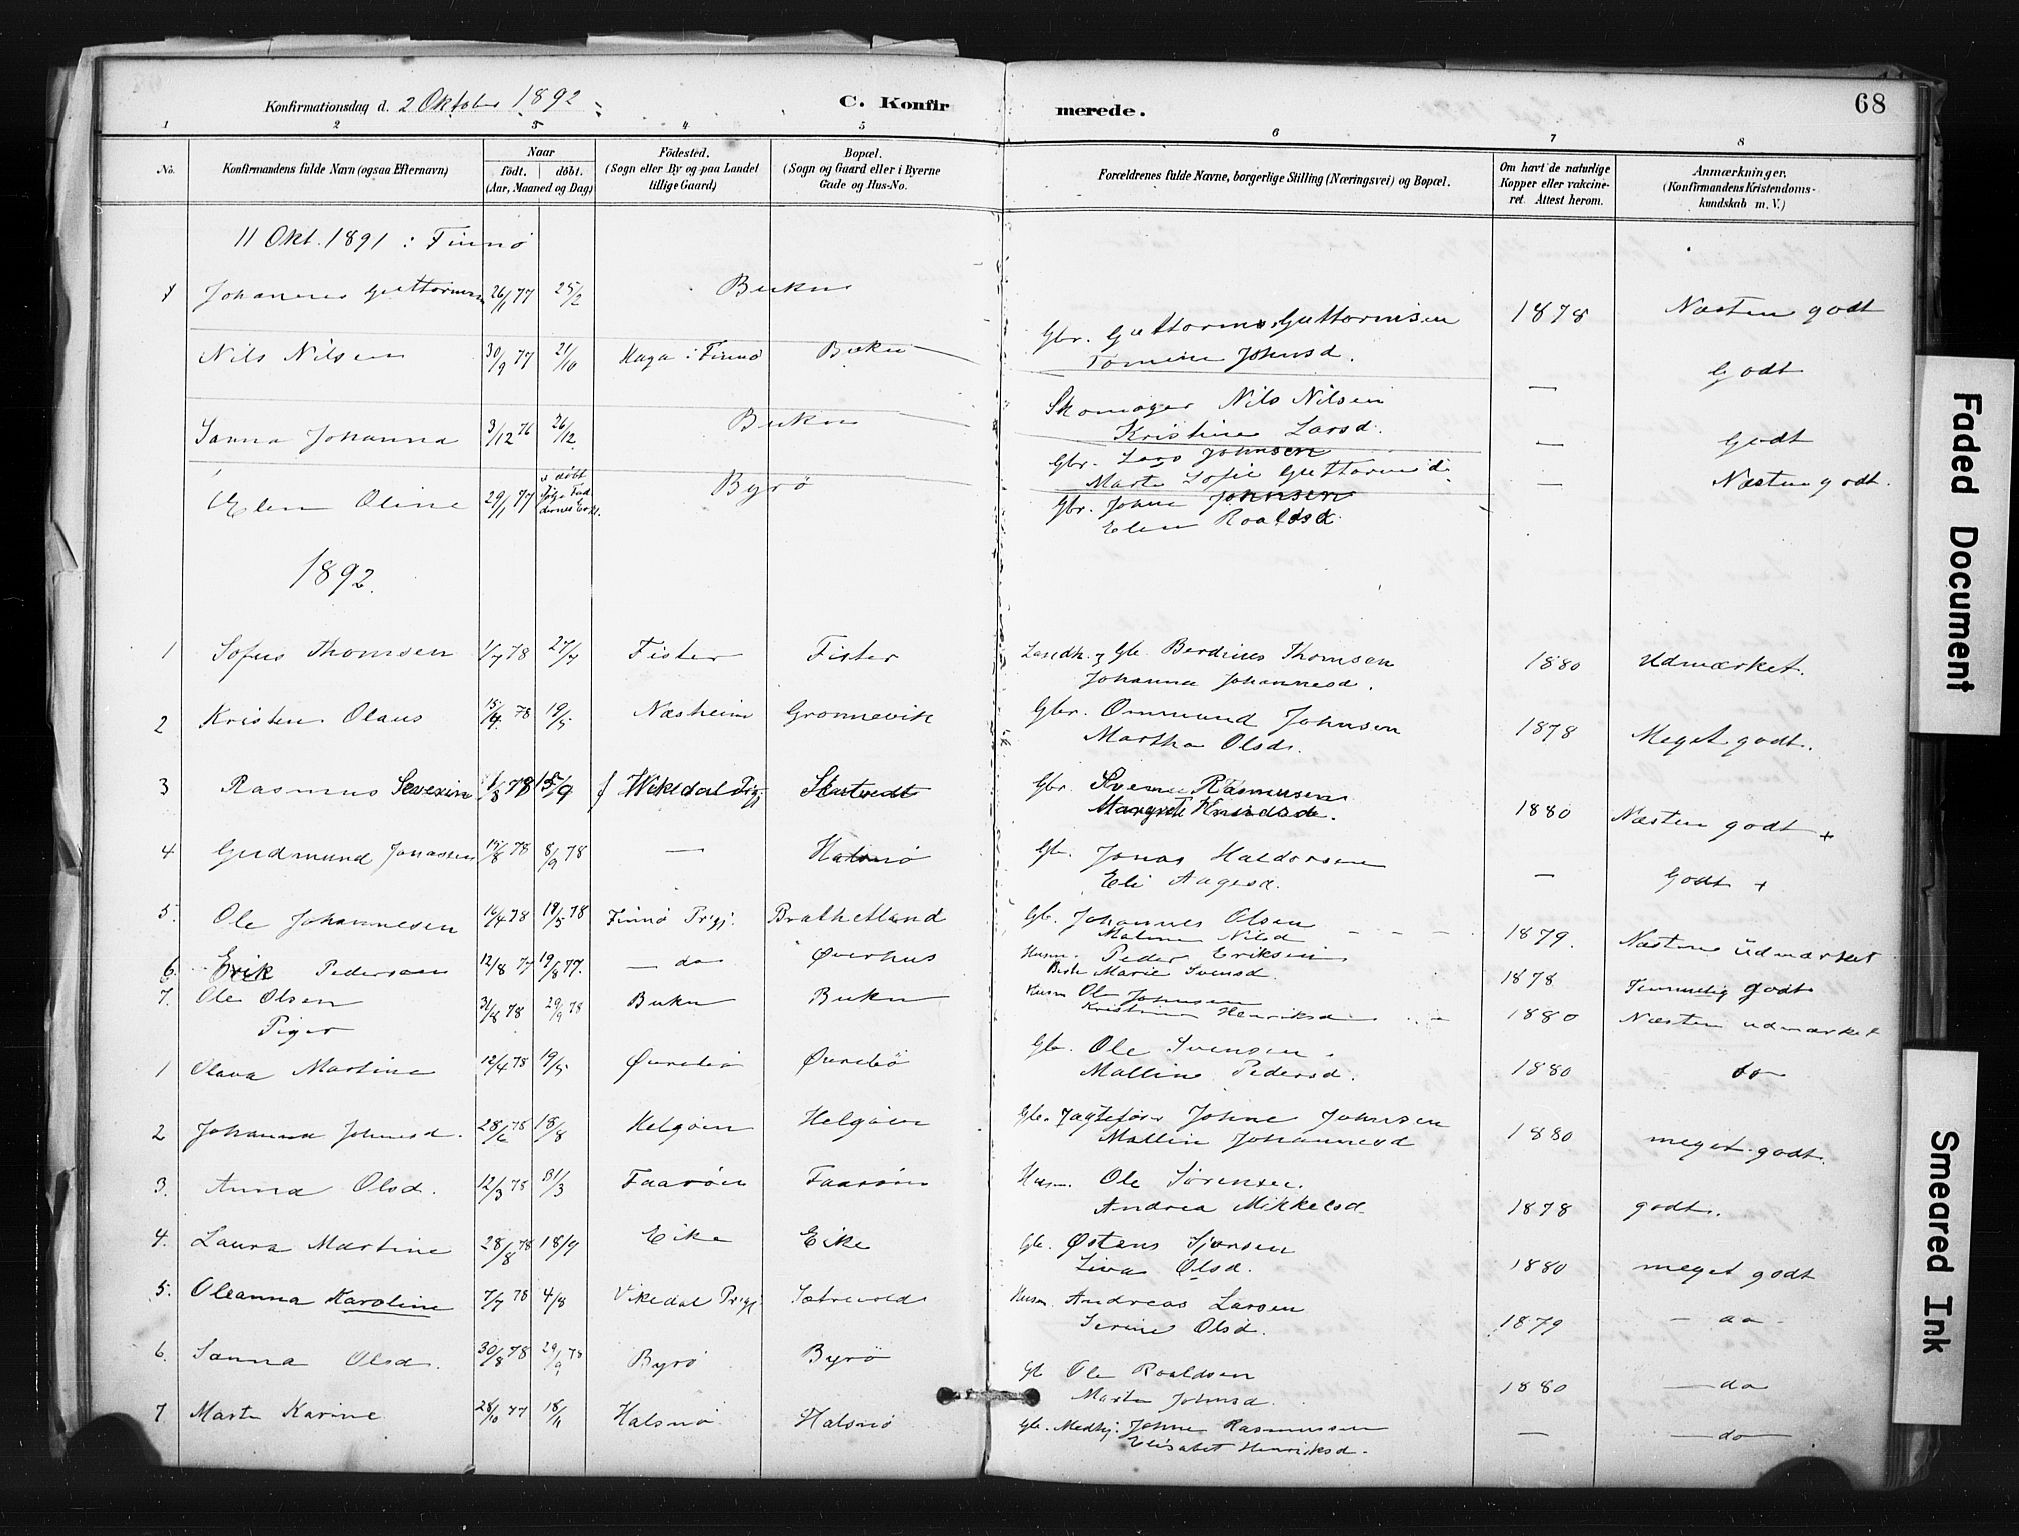 Konfirmationsdag d. 2 Oktober 1892
C. Konfirmerede.
68
1 2 3 4 5 6 7 8
No.
Konfirmandens fulde Navn (ogsaa Efternavn)
Naar
födt. döbt.
(Aar, Maaned og Dag)
Födested.
(Sogn eller By og paa Landet
tillige Gaard)
Bopæl.
(Sogn og Gaard eller i Byerne
Gade og Hus-No.
Forældrenes fulde Navne, borgerlige Stilling (Næringsvei) og Bopæl.
Om havt de naturlige
Kopper eller vakcine-
ret. Attest herom.
Anmærkninger.
(Konfirmandens Kristendoms-
kundskab m.V.)
11 Okt. 1891 i Finnö
Johannes Guttormsen 26/1 77 25/2 Bukn Gbr. Guttorm Guttormsen 1878 Næsten godt
Johnsd.
Nils Nilsen 30/9 77 21/10 Haga i Finnö Bukn Skomager Nils Nilsen — Godt
Kristine Larsd.
Sanna Johanna 3/12 76 26/12 Bukn Gbr. Lars Johnsen — Godt
Marte Sofie Guttormsd.
Elen Oline 29/1 77 Byrö Gbr. Johne Johnsen — Næsten godt.
Elen Roaldsd.
1892.
1 Sofus Thomsen 1/7 78 27/7 Fister Fister Landh. og Gb. Berdines Thomsen 1880 Udmærket.
Johanna Johannesd.
2 Kristen Olaus 15/4 78 19/5 Næsheim Grønnevik Gbr. Ommund Johnsen 1878 Meget godt.
Martha Olsd.
3 Rasmus Severin 1/8 78 15/9 Wikedal Prgj Gbr. Rasmusen 1880 Næsten godt +
Margrete Knudsd.
4 Gudmund Jonassen 15/8 78 8/9 78 — Halsnö Gb. Jonas Haldorsen — Godt +
Eli Aagesd.
5. Ole Johannesen 16/4 78 18/5 78 Finnö Prgj. Brathetland Gb. Johannes Olsen 1879. Næsten udmærket
Malene Nilsd
6. Erik Pedersen 12/8 77 19/8 77. — do Øverhus Husm. Peder Eriksen 1878 Temmelig godt
Berte Marie Svensd.
7. Ole Olsen 31/8 78 29/9 78 Bukn Bukn Husm Ole Johnsen 1880 Næsten udmærket
Kristine Henriksd
Piger
1 Olava Martine 12/4 78 19/5 Øvrebö Øvrebö Gb. Ole Svensen. 1880 do
Malline Pedersd.
2 Johanna Johnesd. 28/6 78 18/8 Helgöen Helgöen Gb. Jægtefører Johne Johnsen 1880 meget godt.
Mallin Johannesd
3. Anna Olsd. 12/3 78 31/3 Faaröen Faaröen Husm. Ole Sørensen. 1878 godt.
Andrea Mikkelsd.
4. Laura Martine 28/8 78 18/9 Eike Eike Gb. Østens Sjursen 1880 meget godt
Liva Olsd.
5. Oleanna Karoline 7/7 78 4/8 Vikedal Prgj. Husm. Andreas Larsen 1879 — do —
Serine Olsd.
6. Sanna Olsd. 30/8 78 29/9 78 Byrö Byrö Gb Ole Roaldsen 1880 — do
Marta Johnsd.
7 Marte Karine 28/10 77 18/11 Halsnö. Halsnö Gb. Medhj. Johne Rasmussen — — do —
Elisabet Henriksd.
Faded Document
Smeared Ink